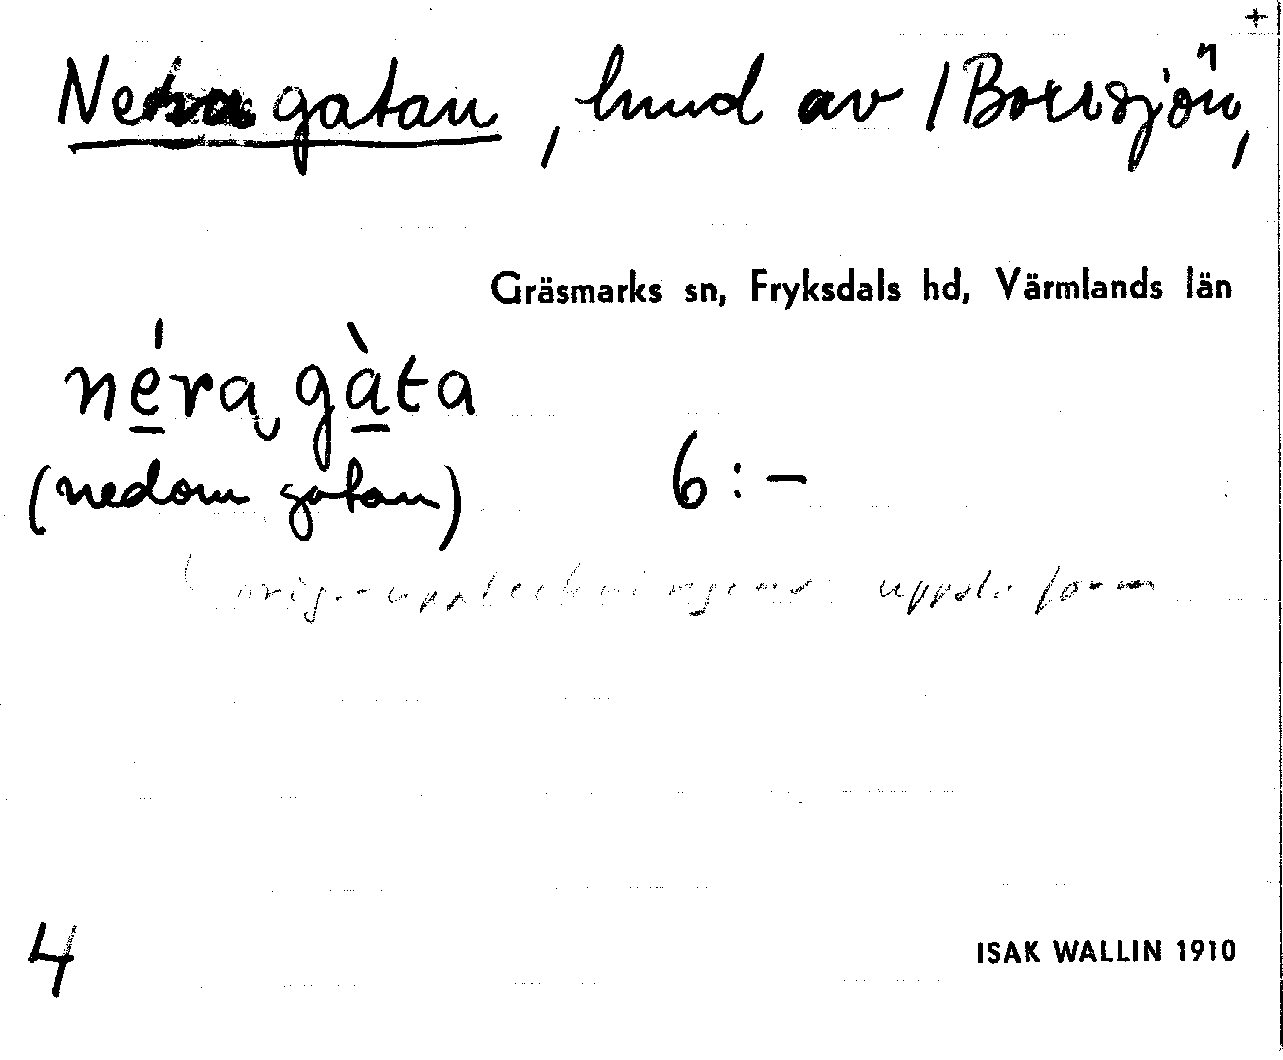 +
Nedra gatan, hmd av /Borrsjön,
Gräsmarks sn, Fryksdals hd, Värmlands län
néra gàta
(nedom gatan) 6:-
orig.-uppteckningens uppsl. form
4
ISAK WALLIN 1910